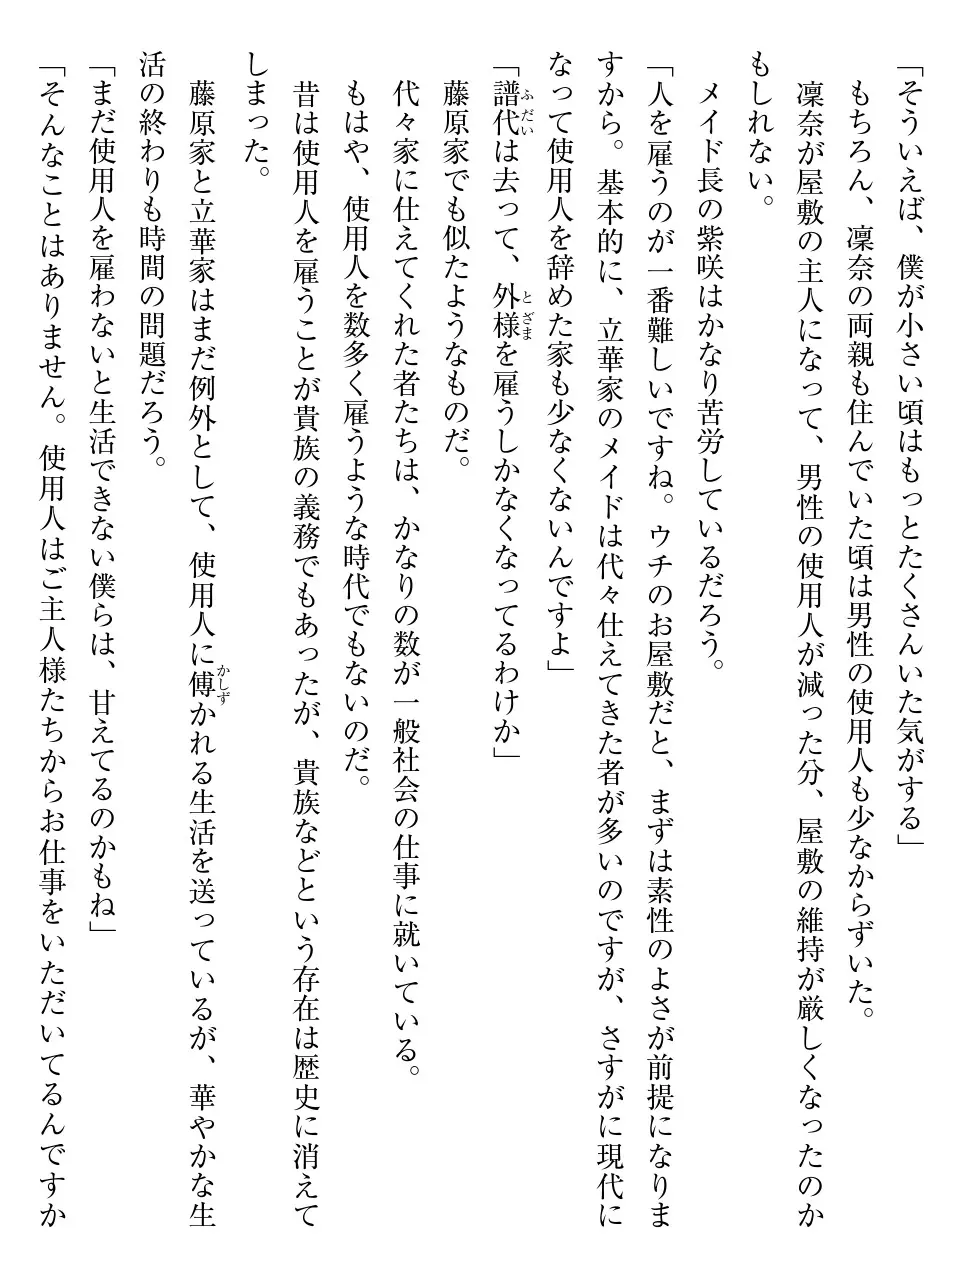 「そういえば、僕が小さい頃はもっとたくさんいた気がする」
　もちろん、凜奈の両親も住んでいた頃は男性の使用人も少なからずいた。
　凜奈が屋敷の主人になって、男性の使用人が減った分、屋敷の維持が厳しくなったのか
もしれない。
　メイド長の紫咲はかなり苦労しているだろう。
「人を雇うのが一番難しいですね。ウチのお屋敷だと、まずは素性のよさが前提になりま
すから。基本的に、立華家のメイドは代々仕えてきた者が多いのですが、さすがに現代に
なって使用人を辞めた家も少なくないんですよ」
「譜代は去って、外様を雇うしかなくなってるわけか」
　藤原家でも似たようなものだ。
　代々家に仕えてくれた者たちは、かなりの数が一般社会の仕事に就いている。
　もはや、使用人を数多く雇うような時代でもないのだ。
　昔は使用人を雇うことが貴族の義務でもあったが、貴族などという存在は歴史に消えて
しまった。
　藤原家と立華家はまだ例外として、使用人に傅かれる生活を送っているが、華やかな生
活の終わりも時間の問題だろう。
「まだ使用人を雇わないと生活できない僕らは、甘えてるのかもね」
「そんなことはありません。使用人はご主人様たちからお仕事をいただいてるんですか